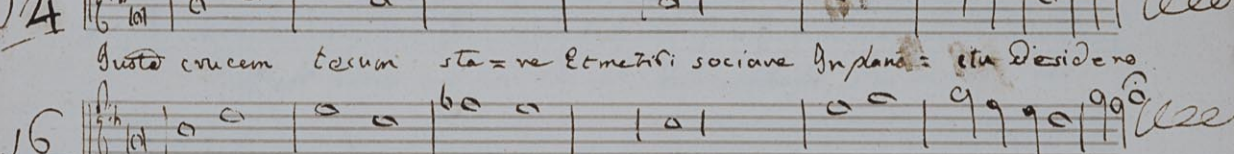 14
Justa crucem tecum sta=re Et me tibi sociare In planc=ctu desidero
16